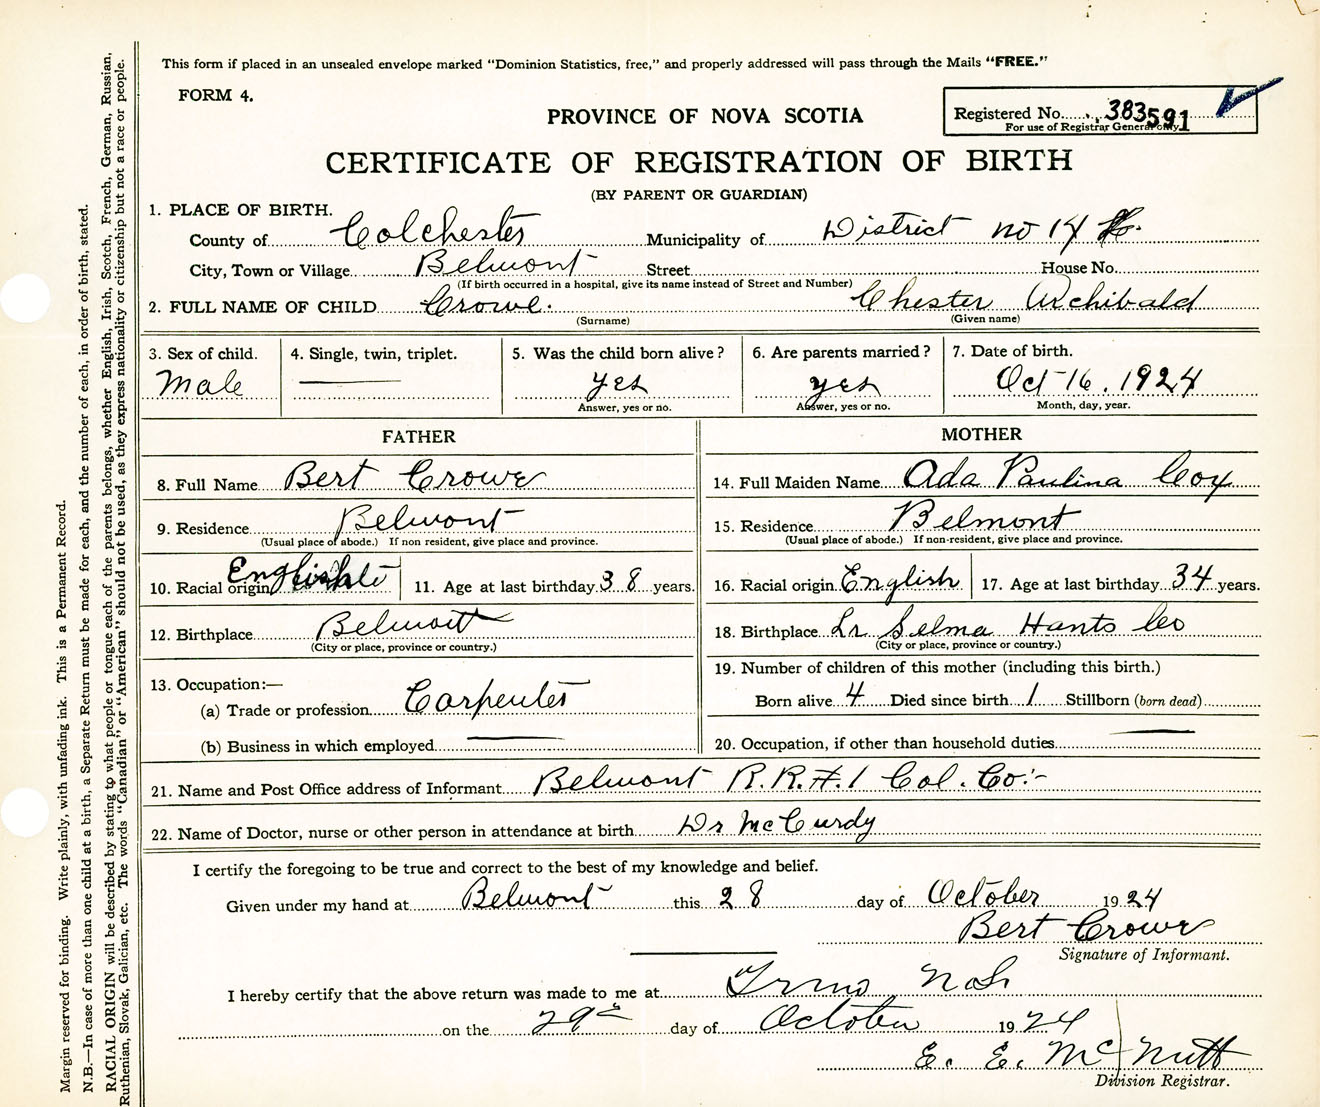 This form if placed in an unsealed envelope marked "Dominion Statistics, free," and properly addressed will pass through the Mails "FREE."
FORM 4.
PROVINCE OF NOVA SCOTIA
Registered No. 383591
For use of Registrar General only
CERTIFICATE OF REGISTRATION OF BIRTH
(BY PARENT OR GUARDIAN)
1. PLACE OF BIRTH.
County of Colchester Municipality of District no 14
City, Town or Village Belmont Street House No.
(If birth occurred in a hospital, give its name instead of Street and Number)
2. FULL NAME OF CHILD Crowe. Chester Archibald
(Surname) (Given name)
3. Sex of child. 4. Single, twin, triplet. 5. Was the child born alive? 6. Are parents married? 7. Date of birth.
Male — yes yes Oct 16. 1924
Answer, yes or no. Answer, yes or no. Month, day, year.
FATHER
8. Full Name Bert Crowe
9. Residence Belmont
(Usual place of abode.) If non resident, give place and province.
10. Racial origin English 11. Age at last birthday 38 years.
12. Birthplace Belmont
(City or place, province or country.)
13. Occupation:—
(a) Trade or profession Carpenter
(b) Business in which employed —
MOTHER
14. Full Maiden Name Ada Paulina Cox
15. Residence Belmont
(Usual place of abode.) If non-resident, give place and province.
16. Racial origin English 17. Age at last birthday 34 years.
18. Birthplace Lr Selma Hants Co
(City or place, province or country.)
19. Number of children of this mother (including this birth.)
Born alive 4 Died since birth 1 Stillborn (born dead)
20. Occupation, if other than household duties —
21. Name and Post Office address of Informant Belmont R.R.#.1 Col. Co:-
22. Name of Doctor, nurse or other person in attendance at birth Dr McCurdy
I certify the foregoing to be true and correct to the best of my knowledge and belief.
Given under my hand at Belmont this 28 day of October 1924
Bert Crowe
Signature of Informant.
I hereby certify that the above return was made to me at
on the 29 day of October 1924
E. E. McNutt
Division Registrar.
Margin reserved for binding. Write plainly, with unfading ink. This is a Permanent Record.
N.B.—In case of more than one child at a birth, a Separate Return must be made for each, and the number of each, in order of birth, stated.
RACIAL ORIGIN will be described by stating to what people or tongue each of the parents belongs, whether English, Irish, Scotch, French, German, Russian,
Ruthenian, Slovak, Galician, etc. The words "Canadian" or "American" should not be used, as they express nationality or citizenship but not a race or people.